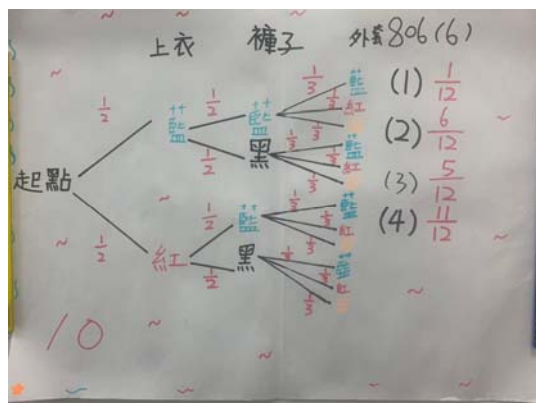 上衣 褲子 外套 806(6)
起點
1/2 藍 1/2 藍 1/3 藍
1/3 紅
1/3
1/2 黑 1/3 藍
1/3 紅
1/3
1/2 紅 1/2 藍 1/3 藍
1/3 紅
1/3
1/2 黑 1/3 藍
1/3 紅
1/3
(1) 1/12
(2) 6/12
(3) 5/12
(4) 11/12
10